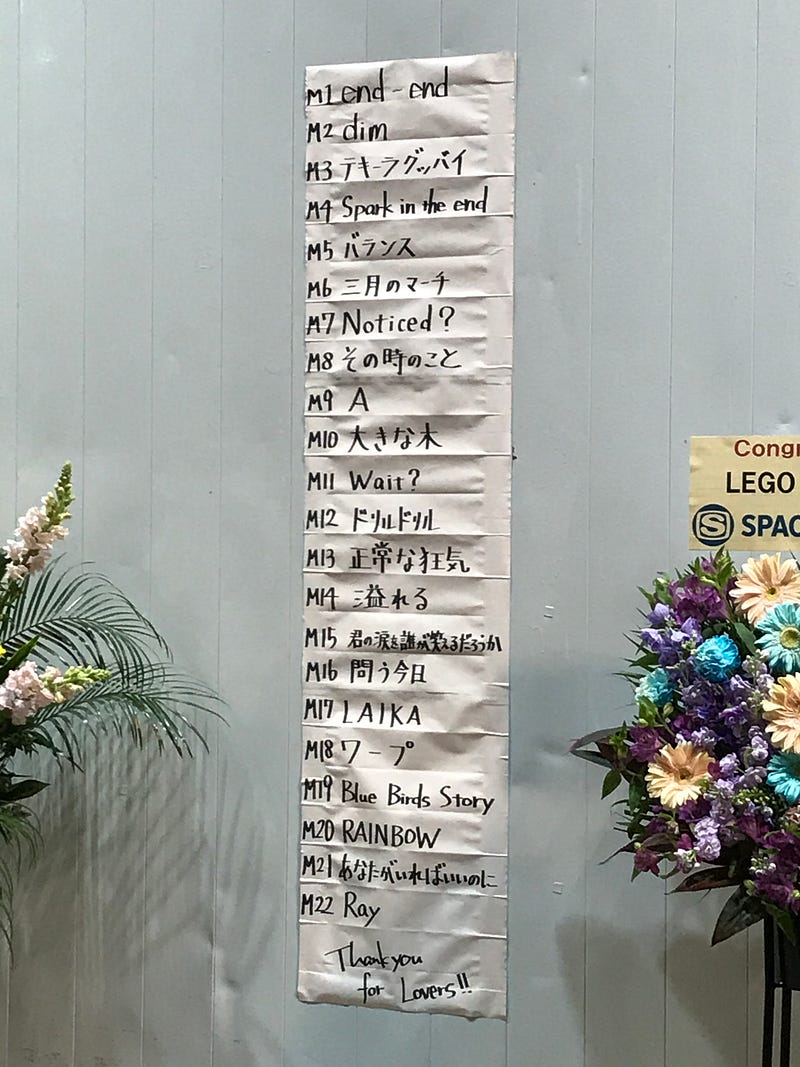 M1 end - end
M2 dim
M3 テキーラグッバイ
M4 Spark in the end
M5 バランス
M6 三月のマーチ
M7 Noticed?
M8 その時のこと
M9 A
M10 大きな木
M11 Wait?
M12 ドリルドリル
M13 正常な狂気
M14 溢れる
M15 君の涙を誰が笑えるだろうか
M16 問う今日
M17 LAIKA
M18 ワープ
M19 Blue Birds Story
M20 RAINBOW
M21 あなたがいればいいのに
M22 Ray
Thank you
for Lovers!!
Congr
LEGO
S SPAC